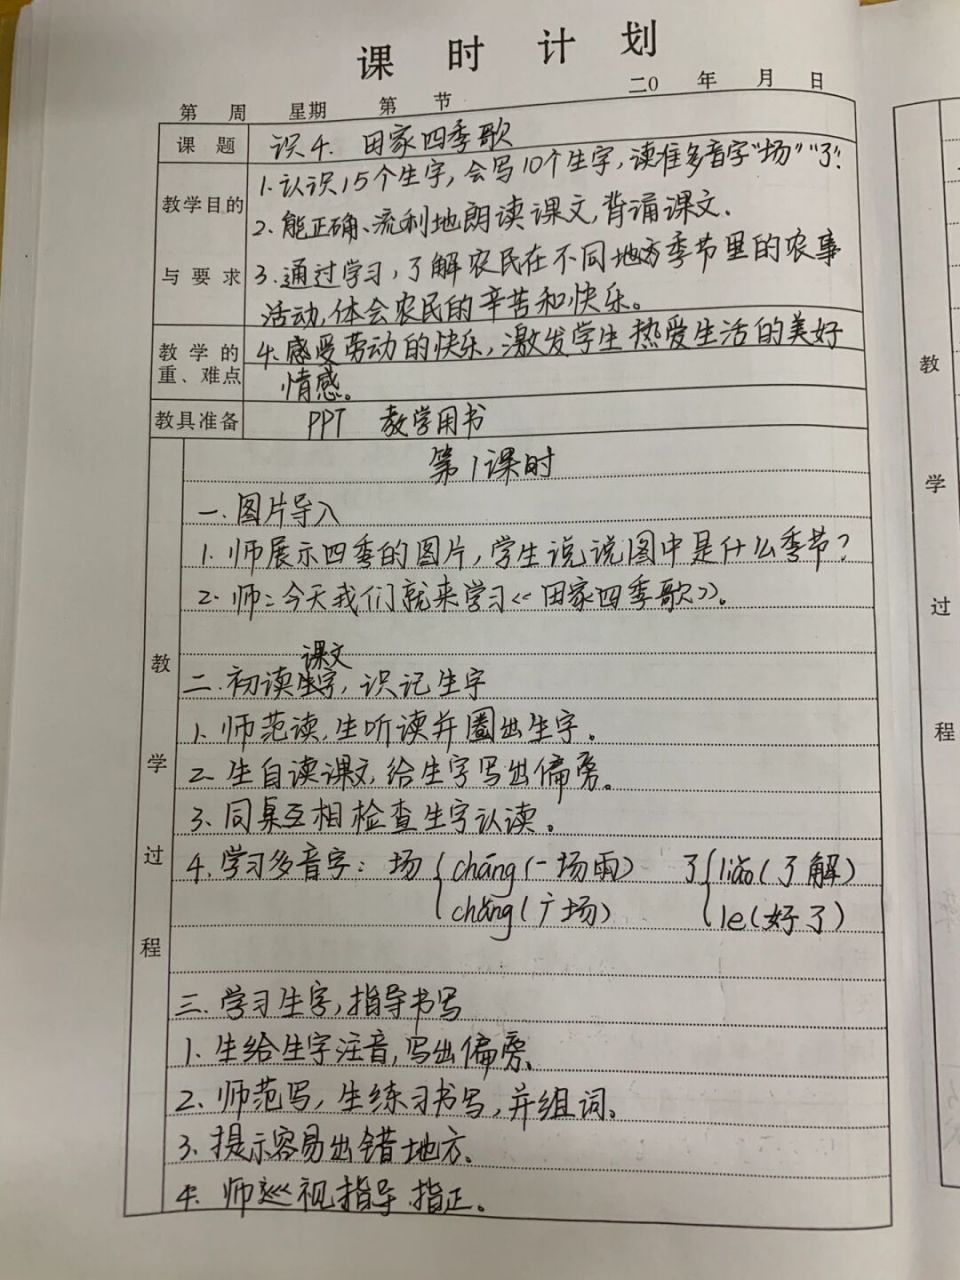 课时计划
第 周 星期 第 节 二0 年 月 日
课题 识4. 田家四季歌
教学目的与要求
1.认识15个生字,会写10个生字,读准多音字"场""了".
2.能正确、流利地朗读课文,背诵课文.
3.通过学习,了解农民在不同地方季节里的农事
活动,体会农民的辛苦和快乐。
教学的重、难点
4.感受劳动的快乐,激发学生热爱生活的美好
情感。
教具准备 PPT 教学用书
教学过程
第1课时
一.图片导入
1.师展示四季的图片,学生说说图中是什么季节?
2.师:今天我们就来学习《田家四季歌》。
课文
二.初读生字,识记生字
1.师范读,生听读并圈出生字。
2.生自读课文,给生字写出偏旁。
3.同桌互相检查生字认读。
4.学习多音字: 场 cháng(一场雨) 了 liǎo(了解)
chǎng(广场) le(好了)
三.学习生字,指导书写
1.生给生字注音,写出偏旁、
2.师范写,生练习书写,并组词、
3.提示容易出错地方、
4.师巡视指导、指正。
教
学
过
程